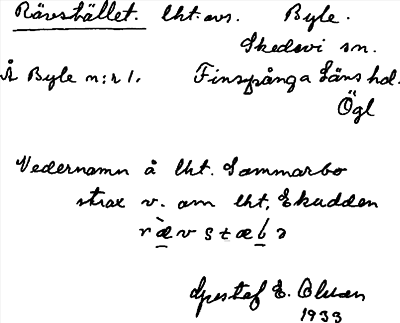 Rävstället. lht. avs. Byle.
Skedevi sn.
Å Byle n:r 1. Finspånga läns hd.
Ögl
Vedernamn å lht. Sammarbo
strax v. om lht. Ekudden
Gustaf E. Olsson
1933